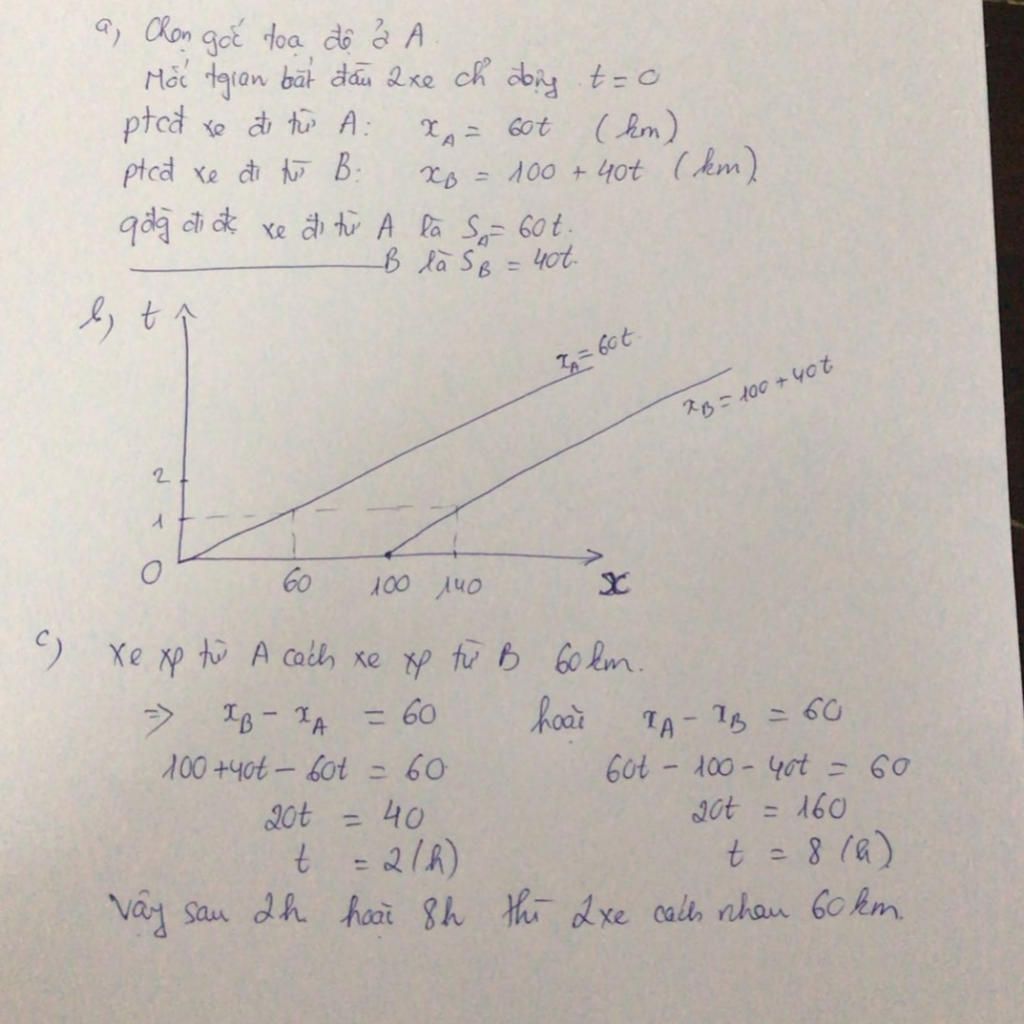 a, Chọn gốc toạ độ ở A.
Mốc tgian bắt đầu 2xe ch động t = 0
ptcđ xe đi từ A: x_A = 60t (km)
ptcđ xe đi từ B: x_B = 100 + 40t (km)
qđg đi đc xe đi từ A là S_A = 60t.
B là S_B = 40t.
b, t
x_A = 60t
x_B = 100 + 40t
2
1
O 60 100 140 x
c) Xe xp từ A cách xe xp từ B 60km.
=> x_B - x_A = 60 hoặc x_A - x_B = 60
100 + 40t - 60t = 60 60t - 100 - 40t = 60
20t = 40 20t = 160
t = 2 (h) t = 8 (h)
Vậy sau 2h hoặc 8h thì 2xe cách nhau 60km.